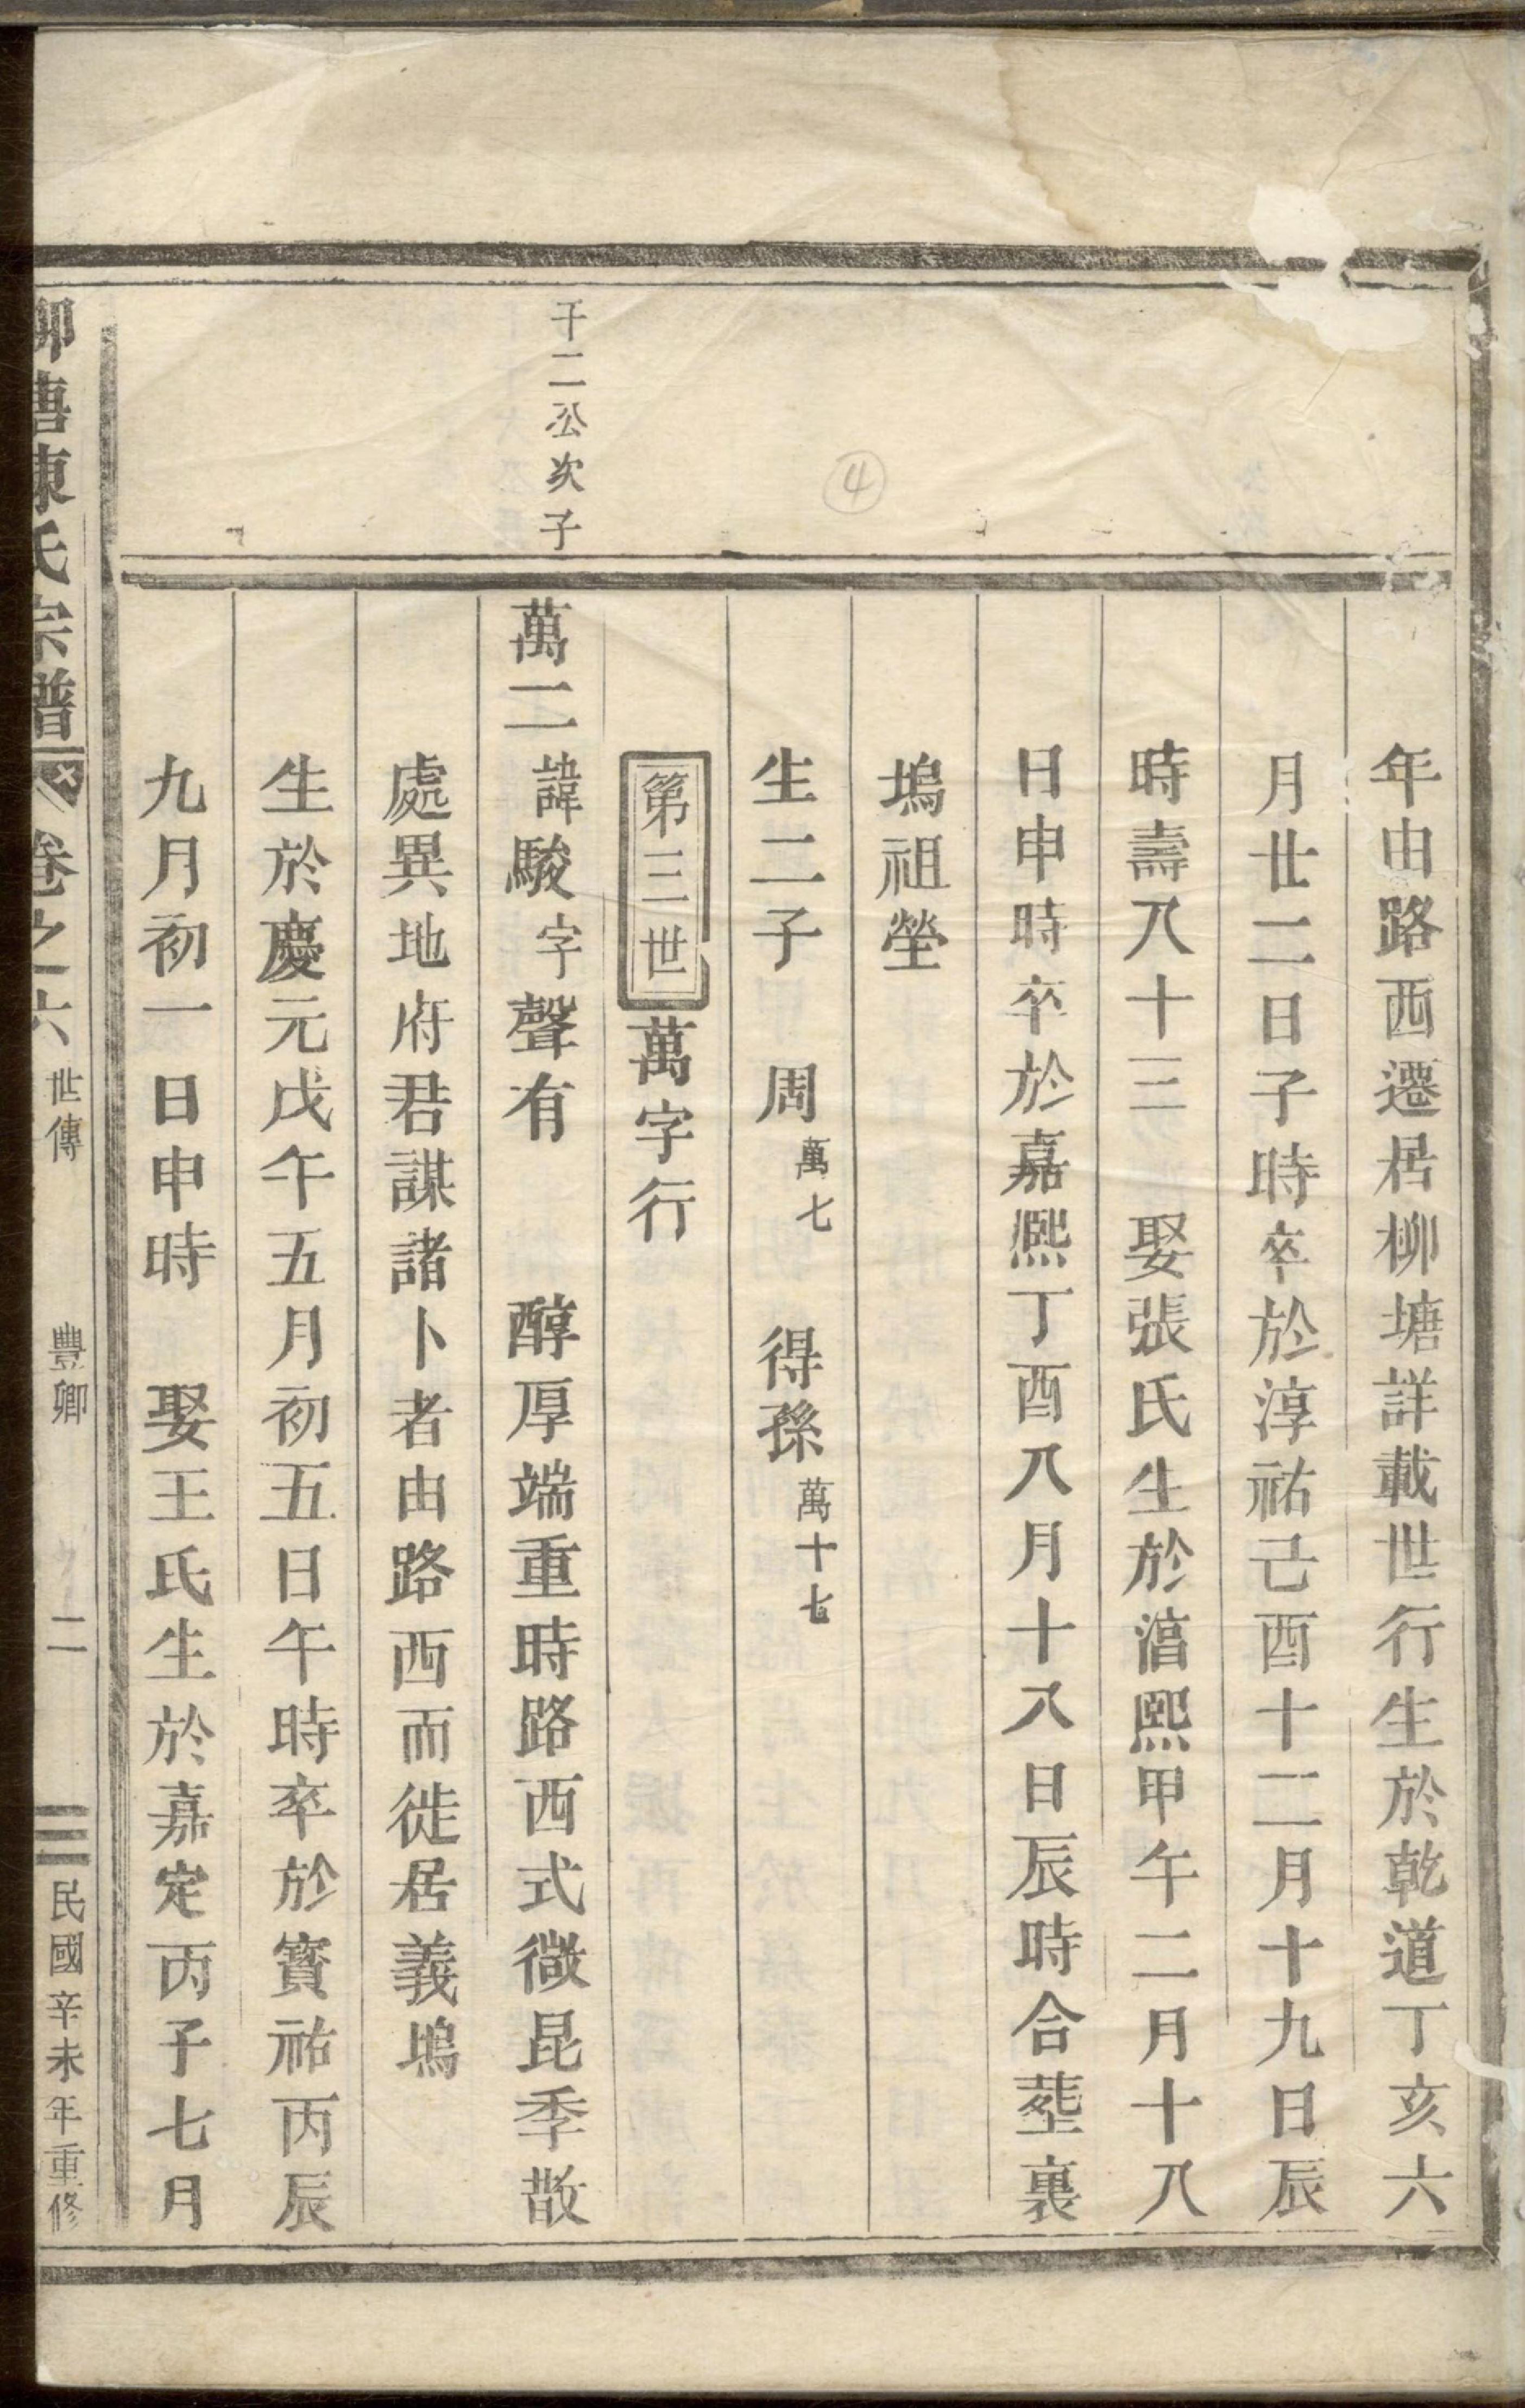 年由路西遷居柳塘詳載世行生於乾道丁亥六
月廿二日子時卒於淳祐己酉十二月十九日辰
時壽八十三 娶張氏生於湻熙甲午二月十八
日申時卒於嘉熙丁酉八月十八日辰時合塟裏
塢祖塋
生二子 周萬七 得孫萬十七
第三世 萬字行
千二公次子
萬二諱駿字聲有 醇厚端重時路西式微昆季散
處異地府君謀諸卜者由路西而徙居義塢
生於慶元戊午五月初五日午時卒於寳祐丙辰
九月初一日申時 娶王氏生於嘉定丙子七月
柳塘陳氏宗譜 卷之六 世傳 豐卿 二 民國辛未年重修
④